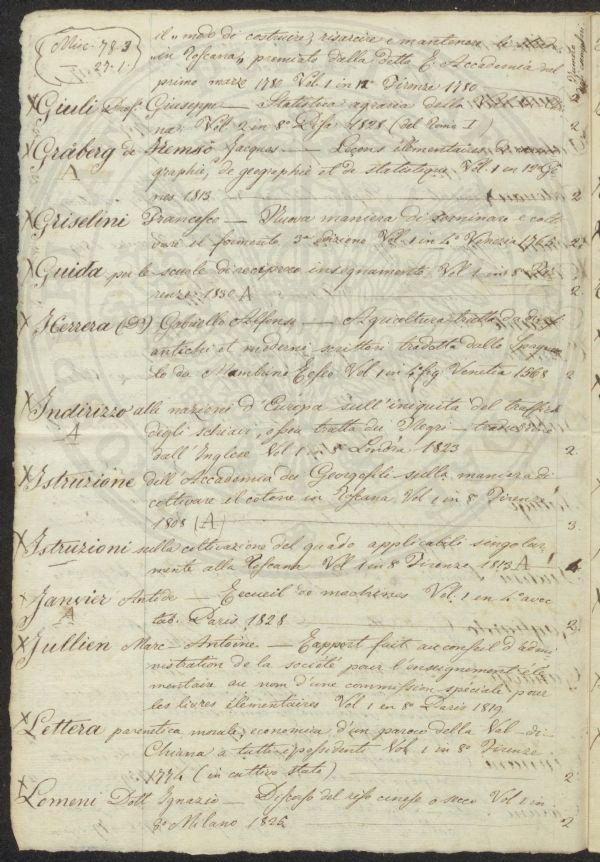 Misc. 78.3
27.1.
il modo di costruire, risarcire e mantenere le strade
in Toscana, premiato dalla detta R. Accademia nel
primo marzo 1780 Vol. 1 in 12° Firenze 1780
Giuli Prof. Giuseppe — Statistica agraria della
Vol. 2 in 8° Pisa 1828 (del Tomo I)
Gräberg de Hemsö Jacques — Leçons élémentaires de
graphie, de geographie et de statistique Vol. 1 en 12° Gê
nes 1813 2
A
Griselini Francesco — Nuova maniera di seminare e colti
vare il formento 3a edizione Vol. 1 in 4° Venezia 1764 2
Guida per le scuole di reciproco insegnamento Vol. 1 in 8° Fi
renze 1830 A 2
Herrera (D') Gabriello Alfonso — Agricoltura tratta da diversi
antichi et moderni scrittori tradotta dalla Spagnuo
la da Mambrino Roseo Vol. 1 in 4° fig Venetia 1568 2
Indirizzo alle nazioni d'Europa sull'iniquità del traffico
degli schiavi, ossia tratta dei Negri — traduzione
dall'Inglese Vol. 1 in Londra 1823 2
A
Istruzione dell'Accademia dei Georgofili sulla maniera di
coltivare il cotone in Toscana Vol. 1 in 8° Firenze
1808 (A) 3
Istruzioni sulla coltivazione del guado applicabili singolar
mente alla Toscana Vol. 1 in 8° Firenze 1813 A
Janvier Antide — Recueil de machines Vol. 1 en 4° avec
tab. Paris 1828 2
A
Jullien Marc-Antoine — Rapport fait au conseil d'admi
nistration de la société pour l'enseignement élé
mentaire au nom d'une commission spéciale pour
les livres élementaires Vol. 1 en 8° Paris 1819
Lettera parenetica morale, economica d'un paroco della Val-di
Chiana a tutti i possidenti Vol. 1 in 8° Firenze
1774 (in cattivo stato) 2
Lomeni Dott Ignazio — Discorso del riso cinese o secco Vol. 1 in
8° Milano 1826 2